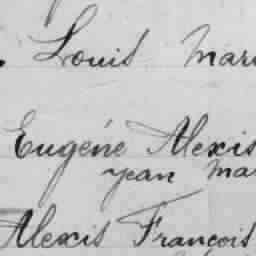 Louis Mari
Eugéne Alexis
Jean Mar
Alexis François